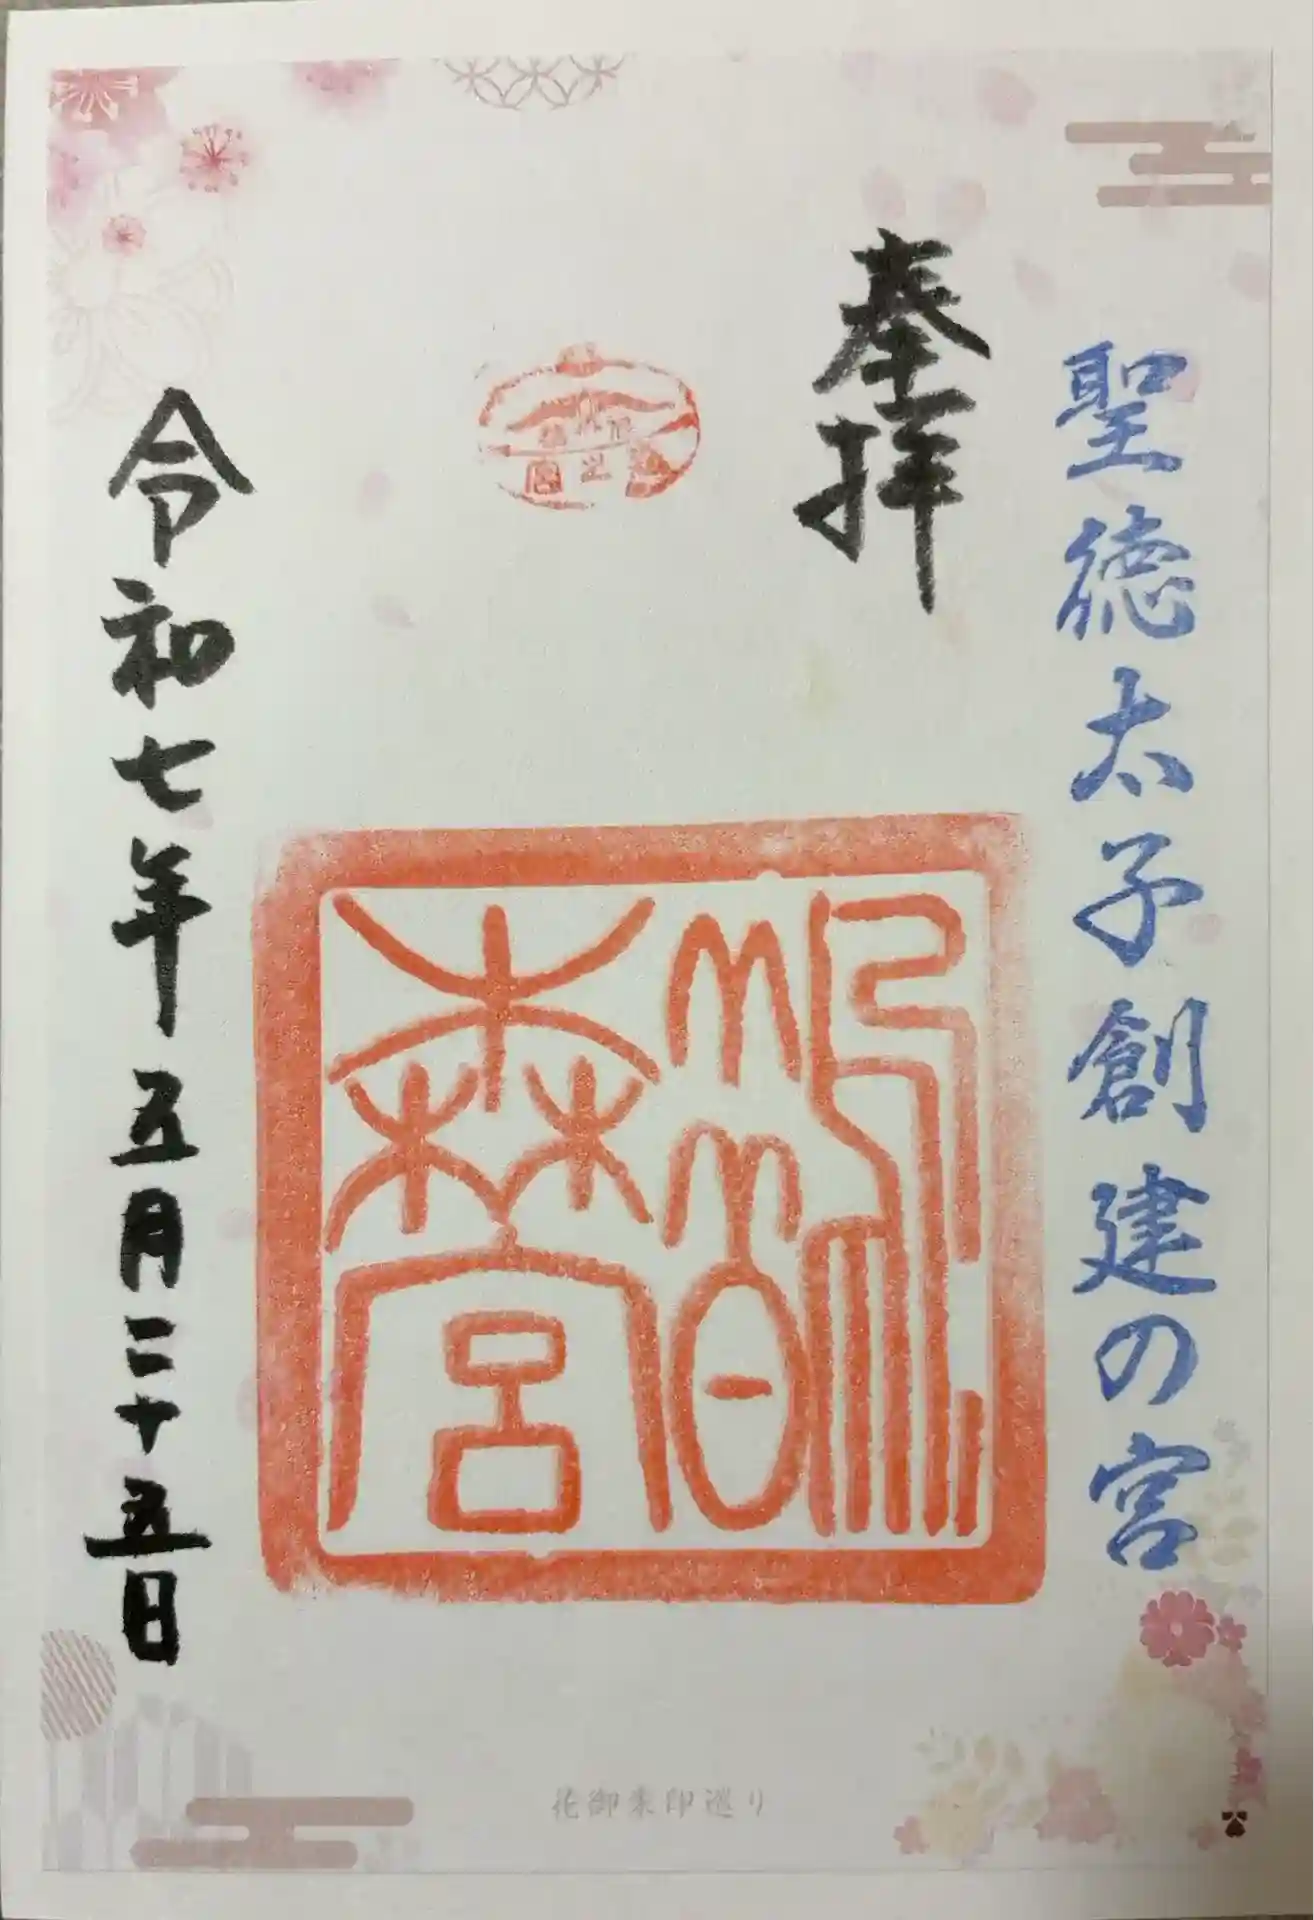 聖徳太子創建の宮
奉拝
鵲森宮
令和七年五月二十五日
花御朱印巡り